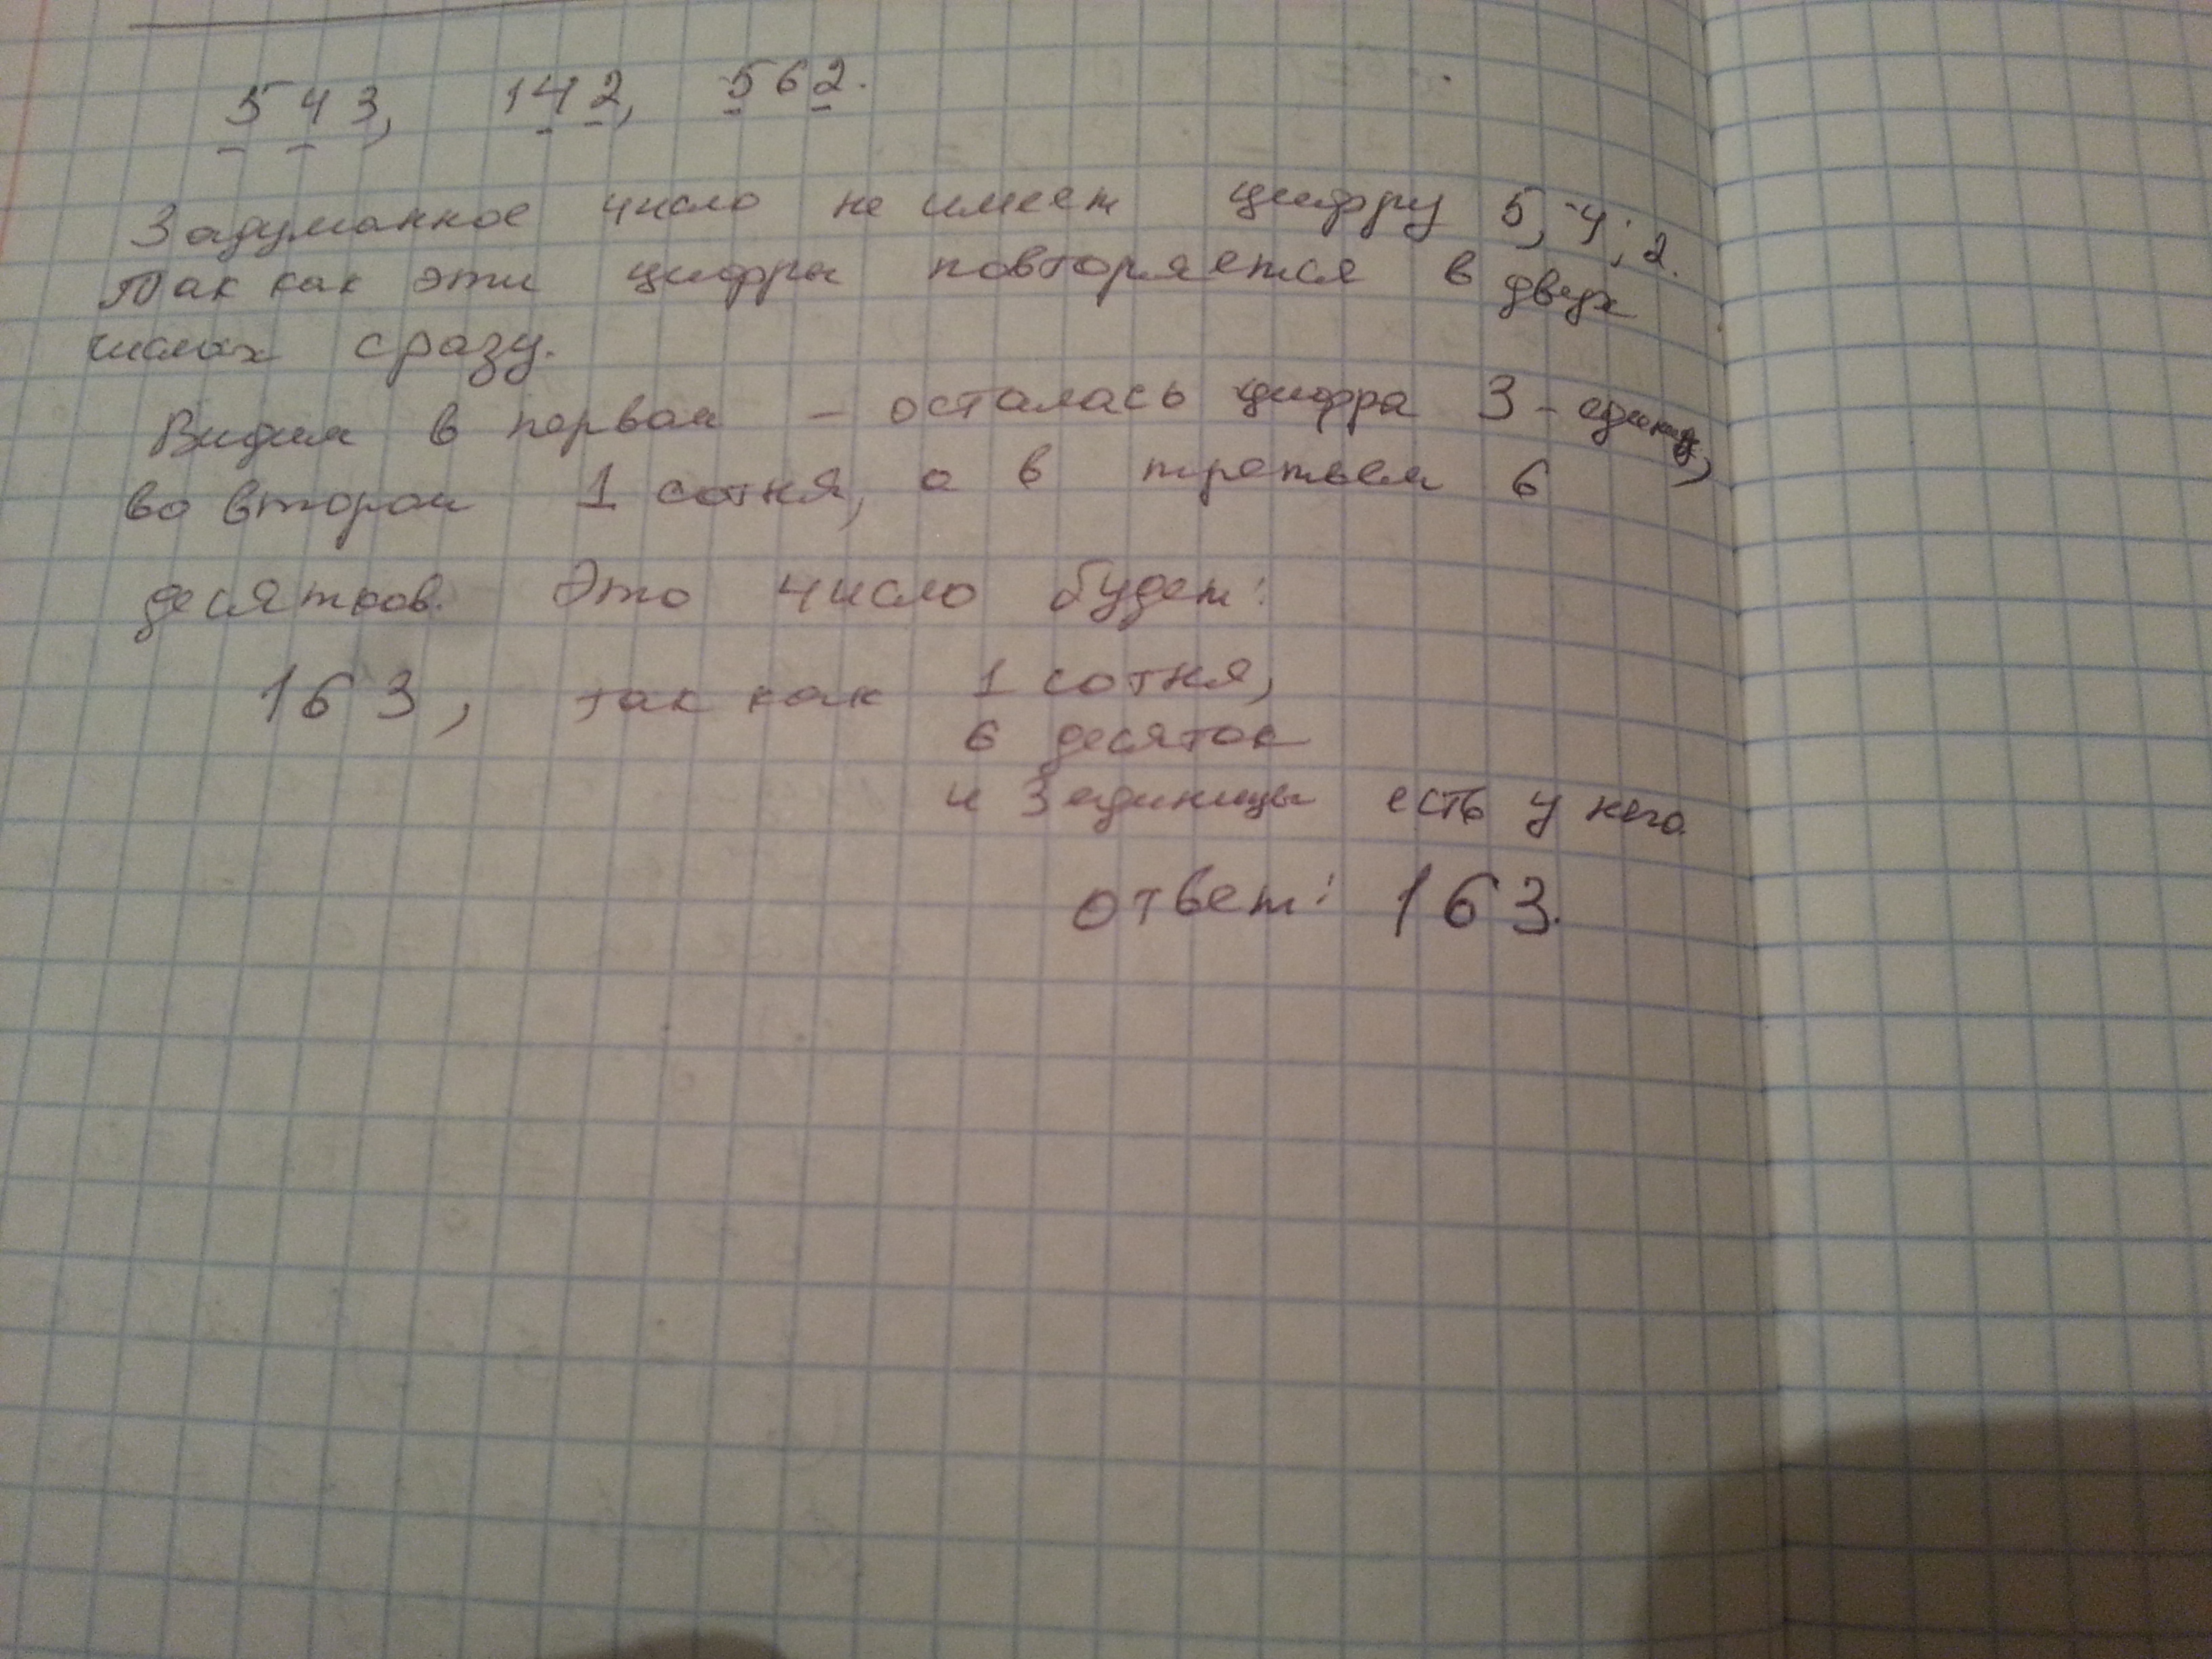 543, 142, 562.
Задуманное число не имеет цифру 5, 4, 2.
Так как эти цифры повторяется в двух
числах сразу.
Видим в первом - осталась цифра 3 - единиц,
во втором 1 сотня, а в третьем 6
десятков. Это число будет:
163, так как 1 сотня,
6 десяток
и 3 единицы есть у него.
ответ: 163.